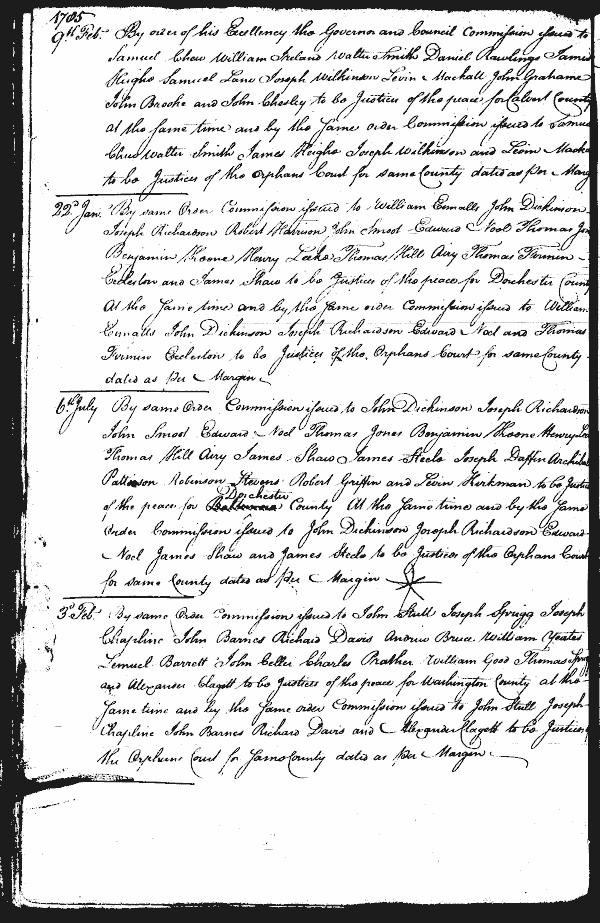 1785
9th Feb. By order of his Excellency the Governor and Council Commission issued to
Samuel Chew William Ireland Walter Smith Daniel Rawlings James
Heighe Samuel Lane Joseph Wilkinson Levin Mackall John Grahame
John Brooke and John Chesley to be Justices of the peace for Calvert County
at the same time and by the same order Commission issued to Samuel
Chew Walter Smith James Heighe Joseph Wilkinson and Levin Macka
to be Justices of the Orphans Court for same County dated as per Marg
22d Jan. By same Order Commission issued to William Ennalls John Dickinson
Joseph Richardson Robert Harrison John Smoot Edward Noel Thomas Jon
Benjamin Keene Henry Lake Thomas Hill Airy Thomas Firmin
Eccleston and James Shaw to be Justices of the peace for Dorchester Count
At the same time and by the same order Commission issued to William
Ennalls John Dickinson Joseph Richardson Edward Noel and Thomas
Firmin Eccleston to be Justices of the Orphans Court for same County
dated as per Margin
6th July By same Order Commission issued to John Dickinson Joseph Richardson
John Smoot Edward Noel Thomas Jones Benjamin Keene Henry La
Thomas Hill Airy James Shaw James Steele Joseph Daffin Archibe
Pattison Robinson Stevens Robert Griffin and Levin Kirkman to be Justic
Dorchester
of the peace for Baltimore County At the same time and by the same
Order Commission issued to John Dickinson Joseph Richardson Edward
Noel James Shaw and James Steele to be Justices of the Orphans Court
for same County dated as per Margin
3d Feb. By same Order Commission issued to John Stull Joseph Sprigg Joseph
Chapline John Barnes Richard Davis Andrew Bruce William Yeates
Lemuel Barrett John Celler Charles Prather William Good Thomas Sprig
and Alexander Clagett to be Justices of the peace for Washington County at the
same time and by the same order Commission issued to John Stull Joseph
Chapline John Barnes Richard Davis and Alexander Clagett to be Justices
the Orphans Court for same County dated as per Margin